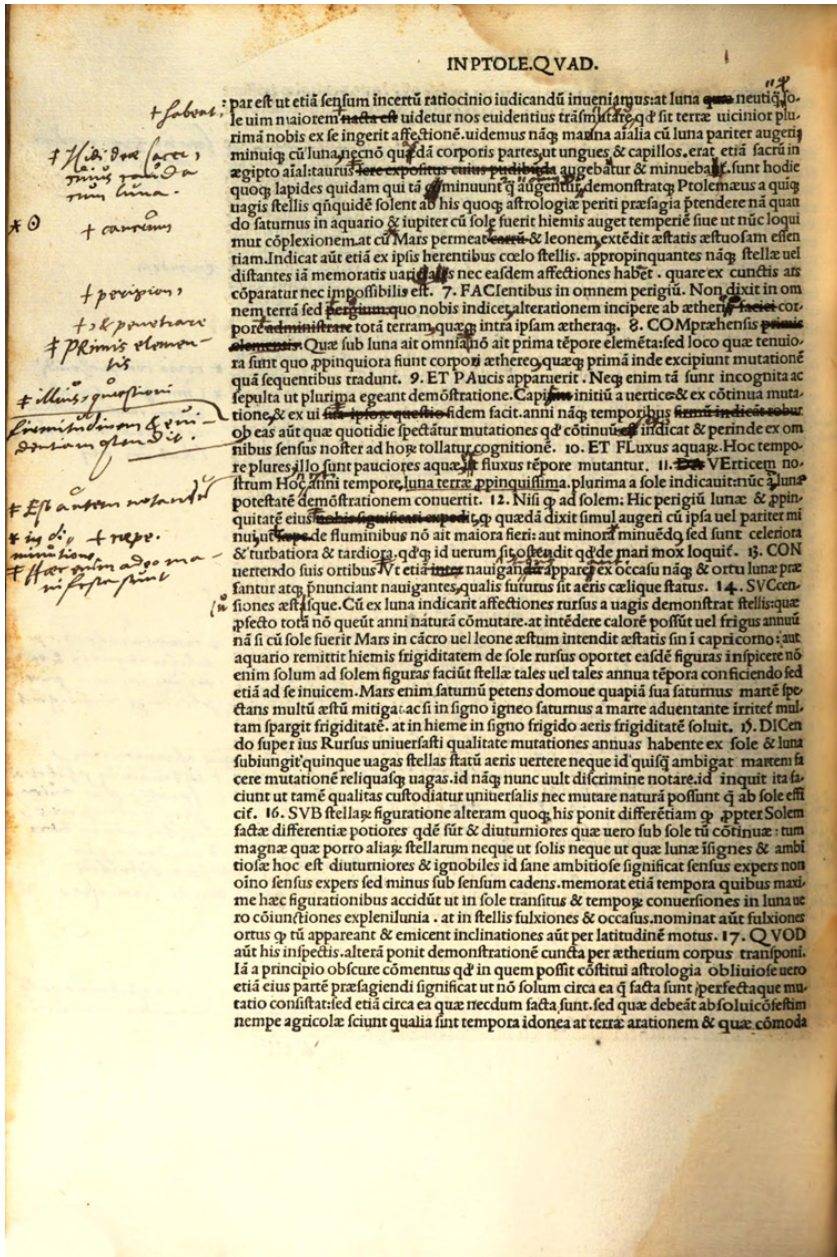 IN PTOLE.QVAD.
par est ut etiã sensum incertũ ratiocinio iudicandũ inueniamus:at luna neutiq̃ so-
le uim maiorem nacta est uidetur nos euidentius trãsmutare,qd̃ sit terræ uicinior plu-
rimã nobis ex se ingerit affectionẽ.uidemus nãq; marina aĩalia cũ luna pariter augeri
minuiq; cũ luna,necnõ quædã corporis partes,ut ungues & capillos.erat etiã sacrũ in
ægipto aĩal:taurus fere expositus cuius pudibũda augebatur & minuebat.sunt hodie
quoq; lapides quidam qui tã minuunt q̃ augentur,demonstratq; Ptolemæus a quiq;
uagis stellis qñquidẽ solent ab his quoq; astrologiæ periti præsagia p̃tendere nã quan
do saturnus in aquario & iupiter cũ sole fuerit hiemis auget temperiẽ siue ut nũc loqui
mur cõplexionem.at cũ Mars permeat & leonem,extẽdit æstatis æstuosam essen
tiam.Indicat aũt etiã ex ipsis herentibus cœlo stellis. appropinquantes nãq; stellæ uel
distantes iã memoratis nec easdem affectiones habẽt . quare ex cunctis ars
cõparatur nec impossibilis est. 7. FACIentibus in omnem perigiũ. Non dixit in om
nem terrã sed pergium,quo nobis indicet,alterationem incipere ab ætheris faciei cor-
pore administrare totã terram,quæq; intra ipsam ætheraq;. 8. COMpræhensis primis
elementis. Quæ sub luna ait omnia,nõ ait prima tẽpore elemẽta:sed loco quæ tenuio-
ra sunt quo ꝓpinquiora fiunt corpori æthereo,quæq; primã inde excipiunt mutationẽ
quã sequentibus tradunt. 9. ET PAucis apparuerit . Neq; enim tã sunt incognita ac
sepulta ut plurima egeant demõstratione. initiũ a uertice & ex cõtinua muta-
tione,& ex ui fidem facit.anni nãq; temporibus firmũ indicãt robur
ob eas aũt quæ quotidie spectãtur mutationes qd̃ cõtinuũ est indicat & perinde ex om
nibus sensus noster ad hoꝝ tollatur cognitionẽ. 10. ET FLuxus aquaꝝ. Hoc tempo-
re plures,illo sunt pauciores aquæ,ut fluxus tẽpore mutantur. 11. VErticem no-
strum Hoc anni tempore,luna terræ ꝓpinquissima.plurima a sole indicauit:nũc a luna
potestatẽ demõstrationem conuertit. 12. Nisi q̃ ad solem: Hic perigiũ lunæ & ꝓpin-
quitatẽ eius nobis significari expedit,q̃ quædã dixit simul augeri cũ ipsa uel pariter mi
nui,ut de fluminibus nõ ait maiora fieri: aut minora minuẽdo,sed sunt celeriora
& turbatiora & tardiora.qd̃q; id uerum sit,ostendit qd̃ de mari mox loquit̃. 13. CON
uertendo suis ortibus Vt etiã inter nauigandũ apparet ex occasu nãq; & ortu lunæ præ
santur atq; p̃nunciant nauigantes,qualis futurus sit aeris cælique status. 14. SVCcen-
siones æstasque.Cũ ex luna indicarit affectiones rursus a uagis demonstrat stellis:quæ
ꝓfecto totã nõ queũt anni naturã cõmutare.at intẽdere calorẽ possũt uel frigus annuũ
nã si cũ sole fuerit Mars in cãcro uel leone æstum intendit æstatis sin ĩ capricorno:aut
aquario remittit hiemis frigiditatem de sole rursus oportet easdẽ figuras inspicere nõ
enim solum ad solem figuras faciũt stellæ tales uel tales annua tẽpora conficiendo sed
etiã ad se inuicem.Mars enim saturnũ petens domoue quapiã sua saturnus martẽ spe-
ctans multũ æstũ mitigat.ac si in signo igneo saturnus a marte aduentante irritet̃ mul-
tam spargit frigiditatẽ. at in hieme in signo frigido aeris frigiditatẽ soluit. 15. DICen
do superius Rursus uniuersali qualitate mutationes annuas habente ex sole & luna
subiungit quinque uagas stellas statũ aeris uertere neque id quisq̃ ambigat martem fa
cere mutationẽ reliquasq; uagas.id nãq; nunc uult discrimine notare.id inquit ita fa-
ciunt ut tamẽ qualitas custodiatur uniuersalis nec mutare naturã possunt q̃ ab sole effi
cit̃. 16. SVB stellaꝝ figuratione alteram quoq; his ponit differẽtiam q̃ ꝓpter Solem
factæ differentiæ potiores qdẽ sũt & diuturniores quæ uero sub sole tũ cõtinuæ:tum
magnæ quæ porro aliaꝝ stellarum neque ut solis neque ut quæ lunæ ĩsignes & ambi
tiosæ hoc est diuturniores & ignobiles id sane ambitiose significat sensus expers non
oĩno sensus expers sed minus sub sensum cadens.memorat etiã tempora quibus maxi-
me hæc figurationibus accidũt ut in sole transitus & tempoꝝ conuersiones in luna ue
ro cõiunctiones explenilunia . at in stellis fulxiones & occasus.nominat aũt fulxiones
ortus q̃ tũ appareant & emicent inclinationes aũt per latitudinẽ motus. 17. QVOD
aũt his inspectis.alterã ponit demonstrationẽ cuncta per ætherium corpus transponi.
Iã a principio obscure cõmentus qd̃ in quem possit cõstitui astrologia obliuiose uero
etiã eius partẽ præsagiendi significat ut nõ solum circa ea q̃ facta sunt perfectaque mu-
tatio consistat:sed etiã circa ea quæ necdum facta sunt. sed quæ debeãt absolui cõfestim
nempe agricolæ sciunt qualia sint tempora idonea at terræ arationem & quæ cõmoda
+ habent
cum luna.
+ cancrum
+ peripion,
+ , & penetrare
‡ PRimis elemen-
tis
‡ illius, quæstioni
firmitudinem & eui-
dentiam ostendit.
‡ Est autem notandũ
‡ in di-
minutione
+ nepe.
‡ Hæc enim adeo ma-
nifesta sunt